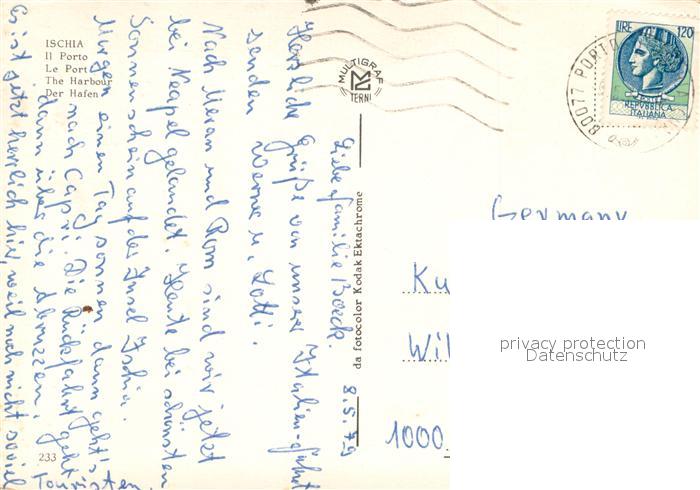 ISCHIA
Il Porto
Le Port
The Harbour
Der Hafen
MULTIGRAF
TERNI
da fotocolor Kodak Ektachrome
233
LIRE 120
REPVBBLICA
ITALIANA
80077 PORTO
8.5.79
Liebe Familie Boeck.
Herzliche Grüße von unserer Italien-Fahrt
senden Werner u. Lotti.
Nach Meran und Rom sind wir jetzt
bei Neapel gelandet. Heute bei schönsten
Sonnenschein auf der Insel Ischia.
Morgen einen Tag sonnen, dann geht's
nach Capri. Die Rückfahrt geht
dann über die Abruzzen.
Es ist jetzt herrlich hier, weil noch nicht soviel
Touristen.
Germany
Ku
Wil
1000
privacy protection
Datenschutz